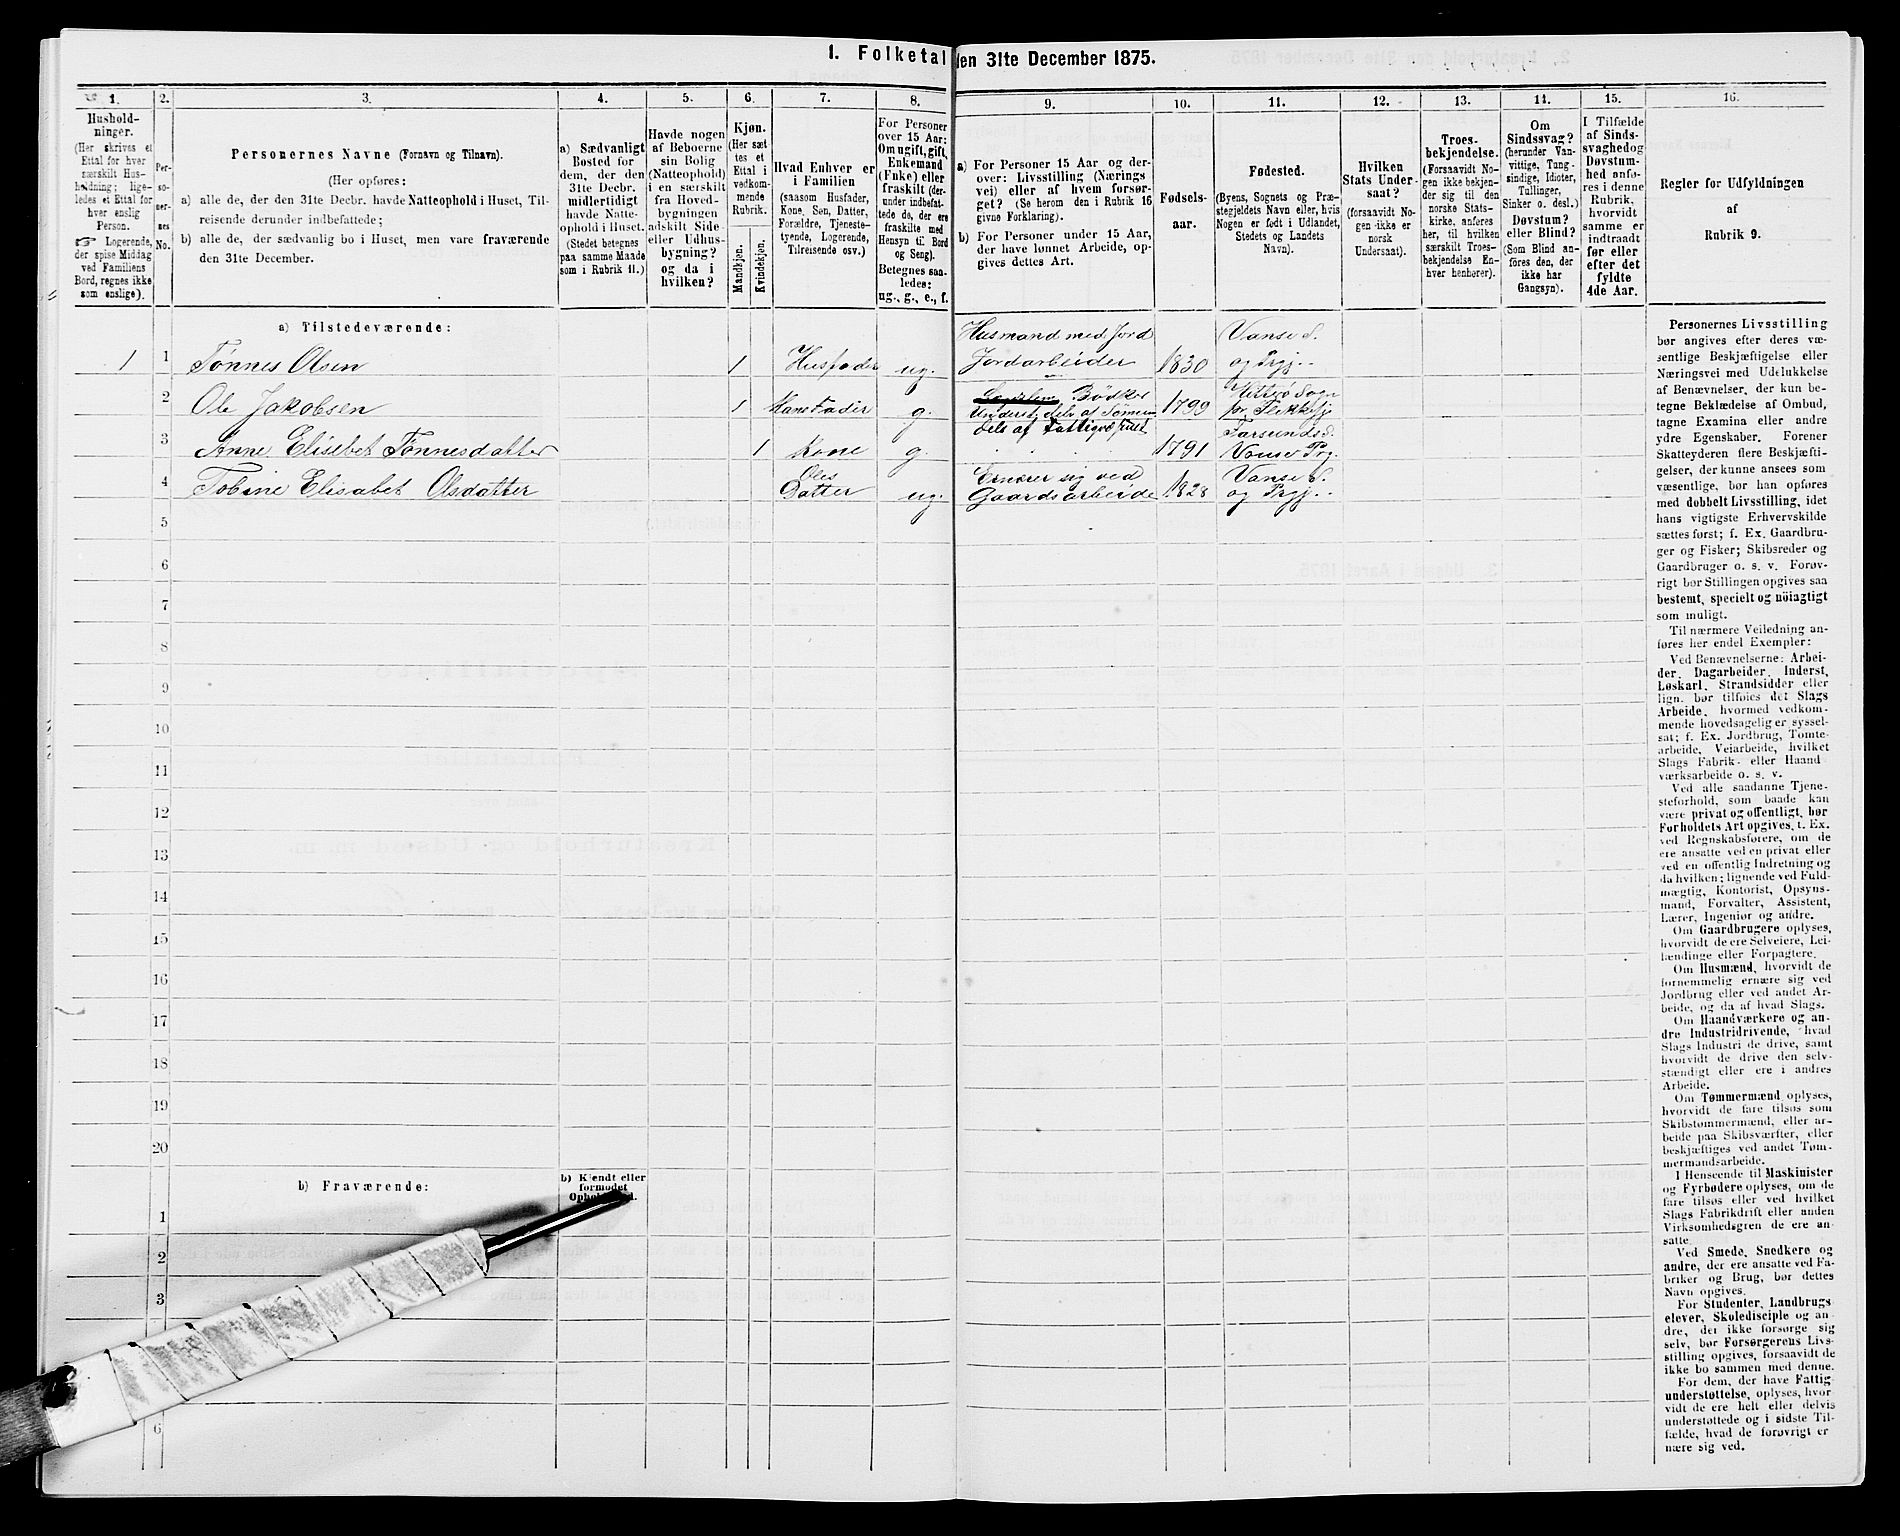 1. Folketal den 31te December 1875.
1.
Hushold-
ninger.
(Her skrives et
Ettal for hver
særskilt Hus-
holdning; lige-
ledes et Ettal for
hver enslig
Person.
Logerende,
der spise Middag
ved Familiens
Bord, regnes ikke
som enslige).
2.
Per-
so-
ner-
nes
No.
3.
Personernes Navne (Fornavn og Tilnavn).
(Her opføres:
a) alle de, der den 31te Decbr. havde Natteophold i Huset, Til-
reisende derunder indbefattede;
b) alle de, der sædvanlig bo i Huset, men vare fraværende
den 31te December.
4.
a) Sædvanligt
Bosted for
dem, der den
31te Decbr.
midlertidigt
havde Natte-
ophold i Huset.
(Stedet betegnes
paa samme Maade
som i Rubrik 11.)
5.
Havde nogen
af Beboerne
sin Bolig
(Natteophold)
i en særskilt
fra Hoved-
bygningen
adskilt Side-
eller Udhus-
bygning?
og da i
hvilken?
6.
Kjøn.
(Her sæt
tes et
Ettal i
vedkom-
mende
Rubrik.
Mandkjøn.
Kvindekjøn.
7.
Hvad Enhver er
i Familien
(saasom Husfader,
Kone, Søn, Datter,
Forældre, Tjeneste-
tyende, Logerende,
Tilreisende osv.)
8.
For Personer
over 15 Aar:
Om ugift, gift,
Enkemand
(Enke) eller
fraskilt (der-
under indbefat-
tede de, der ere
fraskilte med
Hensyn til Bord
og Seng).
Betegnes saa-
ledes:
ug., g., e., f.
9.
a) For Personer 15 Aar og der-
over: Livsstilling (Nærings
vei) eller af hvem forsør-
get? (Se herom den i Rubrik 16
givne Forklaring).
b) For Personer under 15 Aar,
der have lønnet Arbeide, op-
gives dettes Art.
10.
Fødsels-
aar.
11.
Fødested.
(Byens, Sognets og Præ-
stegjeldets Navn eller, hvis
Nogen er født i Udlandet,
Stedets og Landets
Navn).
12.
Hvilken
Stats Under-
saat?
(forsaavidt No-
gen ikke er
norsk
Undersaat).
13.
Troes-
bekjendelse.
(Forsaavidt No-
gen ikke bekjen-
der sig til den
norske Stats-
kirke, anføres
her, til hvilken
særskilt Troes-
bekjendelse En-
hver henhører).
14.
Om
Sindssvag?
(herunder Van-
vittige, Tung-
sindige, Idioter,
Tullinger,
Sinker o. desl.)
Døvstum?
eller Blind?
(Som Blind an-
føres den, der
ikke har
Gangsyn).
15.
I Tilfælde
af Sinds-
svaghed og
Døvstum-
hed anfø-
res i denne
Rubrik,
hvorvidt
samme er
indtraadt
før eller
efter det
fyldte
4de Aar.
16.
Regler for Udfyldningen
af
Rubrik 9.
a) Tilstedeværende:
1 1 Tønnes Olsen 1 Husfader ug. Husmand med Jord
Jordarbeider 1830 Vanse S.
og Prgj.
2 Ole Jakobsen 1 Kone Fader g. Bödker
Underst. dels af Sønnen
dels af Fattigvæsnet 1799 Hitterö Sogn
pr Flekkefj
3 Anne Elisebet Tønnesdatter 1 Kone g. 1791 Farsunds S.
Vanse Prg.
4 Tobine Elisabet Olsdatter Oles
Datter ug. Ernærer sig ved
Gaardsarbeide 1828 Vanse S.
og Prgj.
5
6
7
8
9
10
11
12
13
14
15
16
17
18
19
20
b) Fraværende:
b) Kjendt eller
formodet
1
2
3
6
Personernes Livsstilling
bør angives efter deres væ-
sentlige Beskjæftigelse eller
Næringsvei med Udelukkelse
af Benævnelser, der kun be-
tegne Beklædelse af Ombud,
tagne Examina eller andre
ydre Egenskaber. Forener
Skatteyderen flere Beskjæfti-
gelser, der kunne ansees som
væsentlige, bør han opføres
med dobbelt Livsstilling, idet
hans vigtigste Erhvervskilde
sættes først; f. Ex. Gaardbru-
ger og Fisker; Skibsreder og
Gaardbruger o. s. v. Forøv-
rigt bør Stillingen opgives saa
bestemt, specielt og nöiagtigt
som muligt.
Til nærmere Veiledning an-
føres her endel Exempler:
Ved Benævnelserne: Arbei-
der, Dagarbeider, Inderst,
Løskarl, Strandsidder eller
lign. bør tilføies det Slags
Arbeide, hvormed vedkom-
mende hovedsagelig er syssel-
sat; f. Ex. Jordbrug, Tomte-
arbeide, Veiarbeide, hvilket
Slags Fabrik- eller Haand
værksarbeide o. s. v.
Ved alle saadanne Tjene-
steforhold, som baade kan
være privat og offentligt, bør
Forholdets Art opgives, t. Ex.
ved Regnskabsførere, om de
ere ansatte ved en privat eller
ved en offentlig Indretning og
da hvilken; lignende ved Fuld-
mægtig, Kontorist, Opsyns-
mand, Forvalter, Assistent,
Lærer, Ingeniør og andre.
Om Gaardbrugere oplyses,
hvorvidt de ere Selveiere, Lei-
lændinge eller Forpagtere.
Om Husmænd, hvorvidt de
fornemmelig ernære sig ved
Jordbrug eller ved andet Ar-
beide, og da af hvad Slags.
Om Haandværkere og an-
dre Industridrivende, hvad
Slags Industri de drive, samt
hvorvidt de drive den selv-
stændigt eller ere i andres
Arbeide.
Om Tømmermænd oplyses,
hvorvidt de fare tilsøs som
Skibstømmermænd, eller ar-
beide paa Skibsværfter, eller
beskjæftiges ved andet Tøm-
mermandsarbeide.
I Henseende til Maskinister
og Fyrbødere oplyses, om de
fare tilsøs eller ved hvilket
Slags Fabrikdrift eller anden
Virksomhedsgren de ere an-
satte.
Ved Smede, Snedkere og
andre, der ere ansatte ved Fa-
briker og Brug, bør dettes
Navn opgives.
For Studenter, Landbrugs
elever, Skoledisciple og an-
dre, der ikke forsørge sig
selv, bør Forsørgerens Livs-
stilling opgives, forsaavidt de
ikke bo sammen med denne.
For dem, der have Fattig
understøttelse, oplyses, hvor
vidt de ere helt eller delvis
understøttede og i sidste Til-
fælde, hvad de forøvrigt er
nære sig ved.